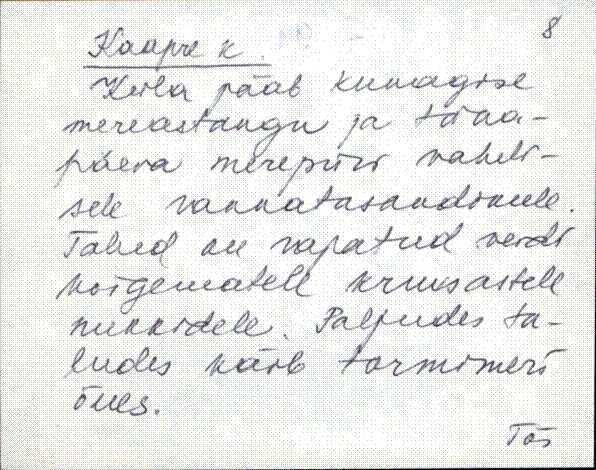 8
Kaapre k.
Keila jääb kunagise
mereastangu ja täna-
päeva merepiiri waheli-
sele rannatasandikule.
Talud on rajatud veidi
kõrgematele kruusastele
nukkidele. Paljudes ta-
ludes käib tormimeri
õues.